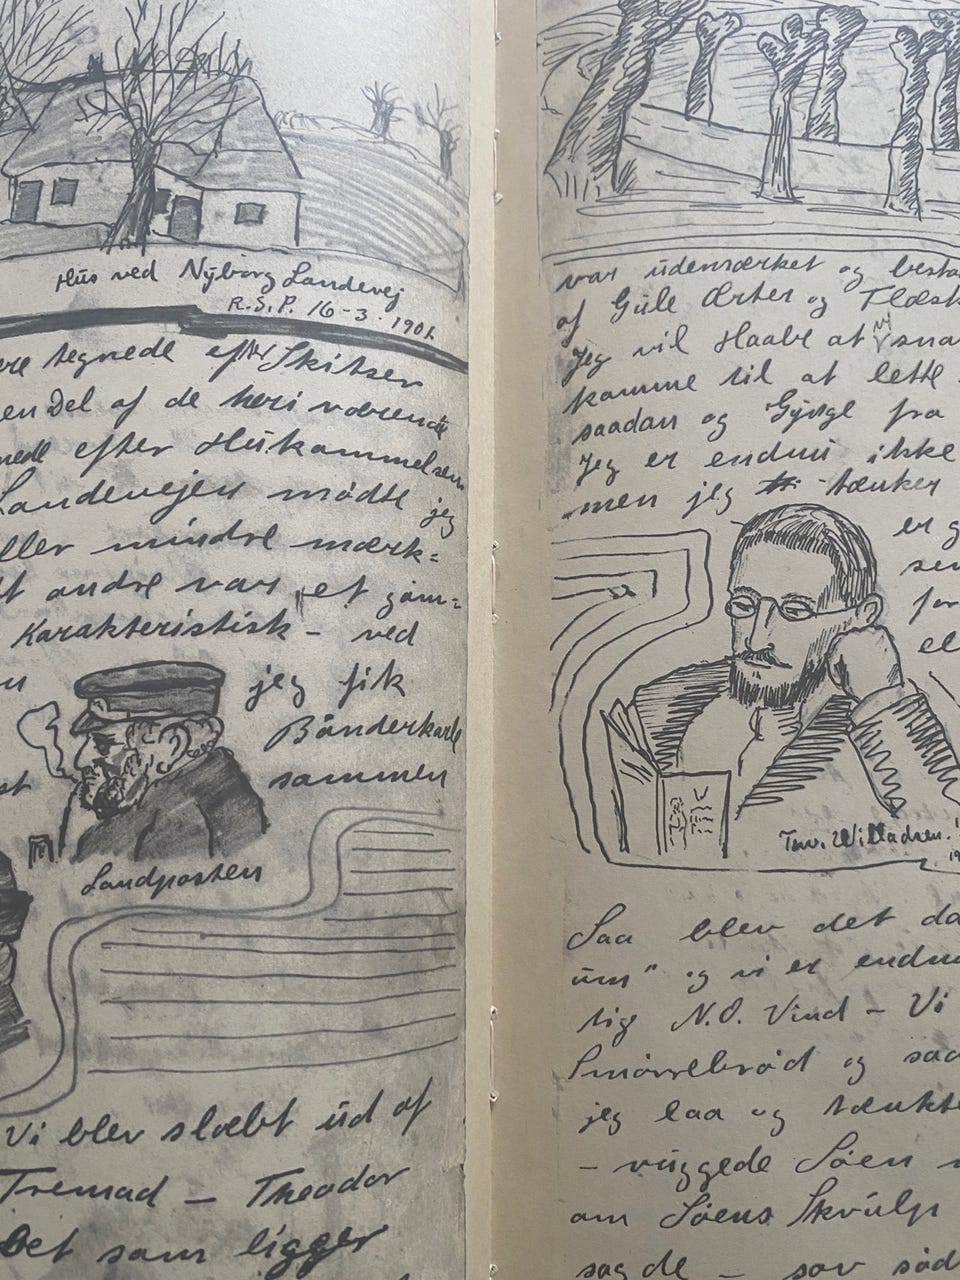 Hus ved Nyborg Landevej
R.S.P. 16-3-1901.
tegnede efter Skitser
en Del af de heri værende
efter Hukommelsen
Landevejen mødte jeg
eller mindre mærk=
andre var et gam=
Karakteristisk - ved
jeg fik
Bonderkarle
sammen
Landposten
Vi blev slæbt ud af
Tremad - Theodor
Det som ligger
var udemærket og besto
af Gule Ærter og Flæsk
Jeg vil Haabe at vi snar
komme til at lette
saadan og Gynge fra
Jeg er endnu ikke
men jeg tænker
er g
sen
for
el
Tmv. Willadsen.
Saa blev det da
um" og vi er endnu
tig N.O. Vind - Vi
Smørrebrød og saa
jeg laa og tænkte
- vuggede Søen
om Søens Skvulp
sagde - sov sød